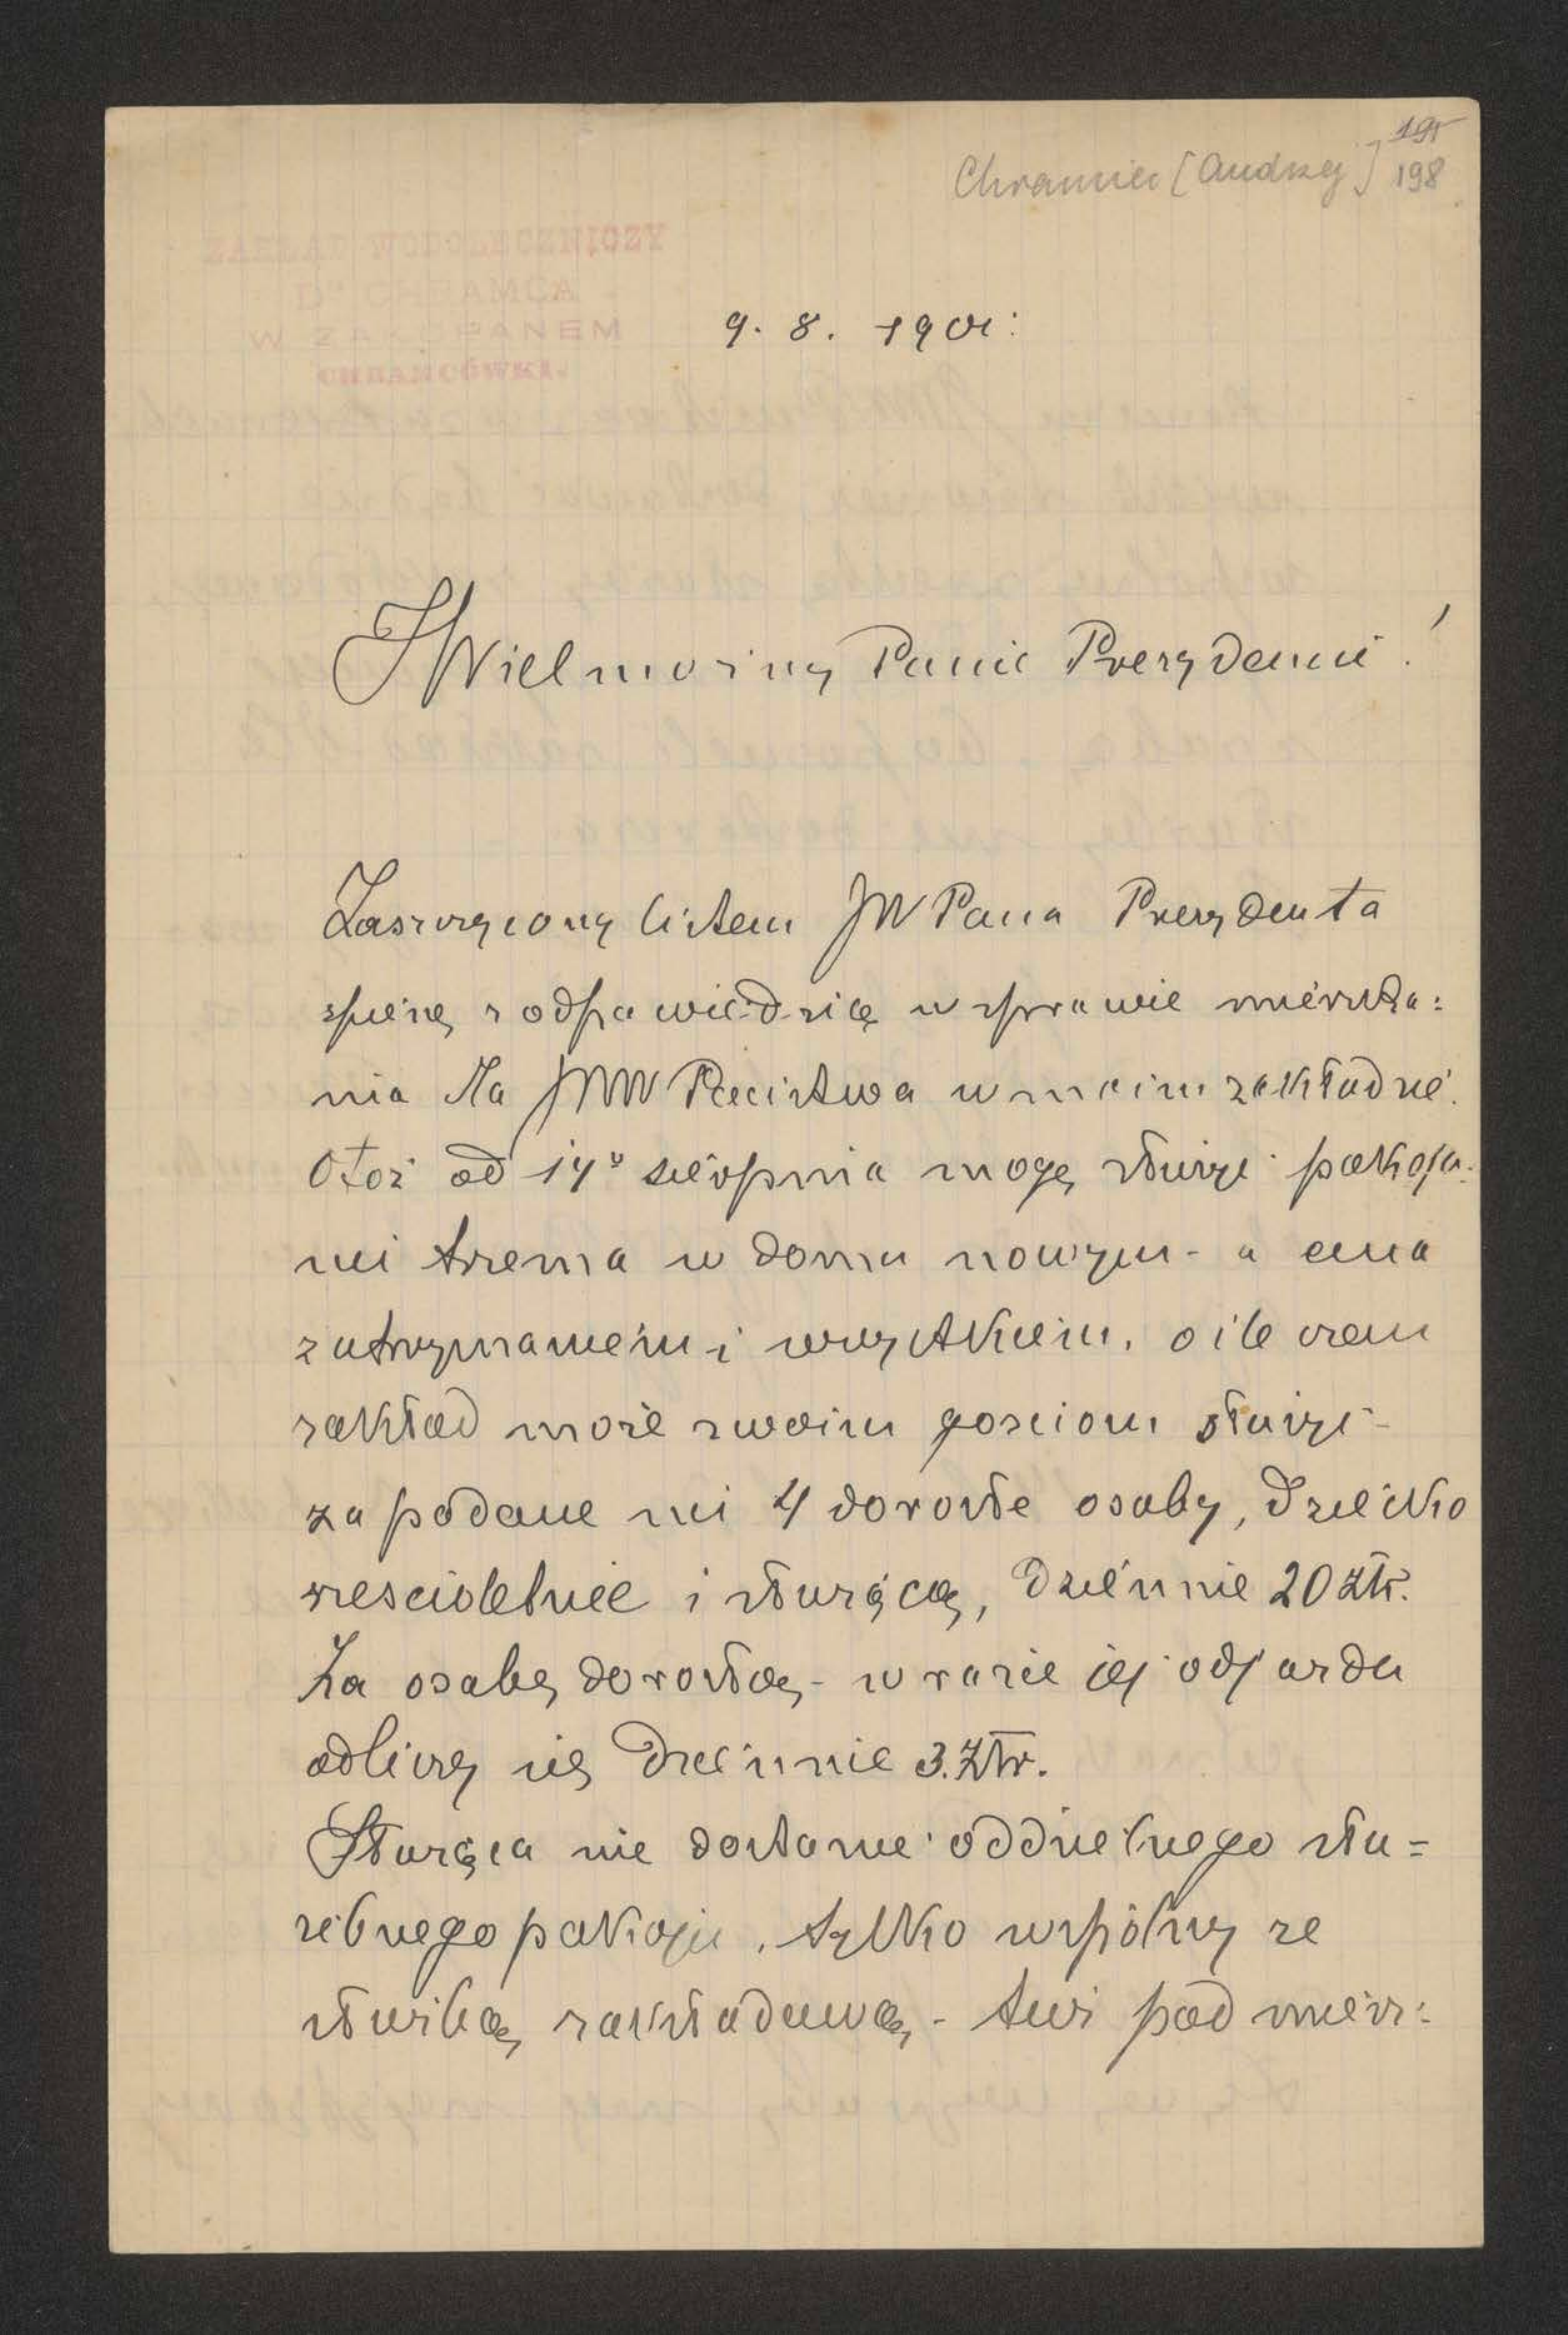 195
Chramiec [Andrzej] 198
ZAKŁAD WODOLECZNICZY
Dra CHRAMCA
W ZAKOPANEM
CHRAMCÓWKI.
9. 8. 1901.
JWielmożny Panie Prezydencie!
Zaszczycony listem JWPana Prezydenta
spieszę z odpowiedzią w sprawie mieszka=
nia dla JWW Państwa w moim zakładzie.
Otóż od 14go sierpnia mogę służyć pokoja=
mi trzema w domu nowym - a cena
z utrzymaniem i wszystkiem, o ile
zakład może swoim gościom służyć -
za podane mi 4 dorosłe osoby, dziecko
sześcioletnie i służącą, dziennie 20 złr.
Za osobę dorosłą - w razie jej odjazdu
odliczy się dziennie 3. złr.
Służąca nie dostanie oddzielnego słu=
żebnego pokoju, tylko wspólny ze
służbą zakładową - tuż pod miesz=